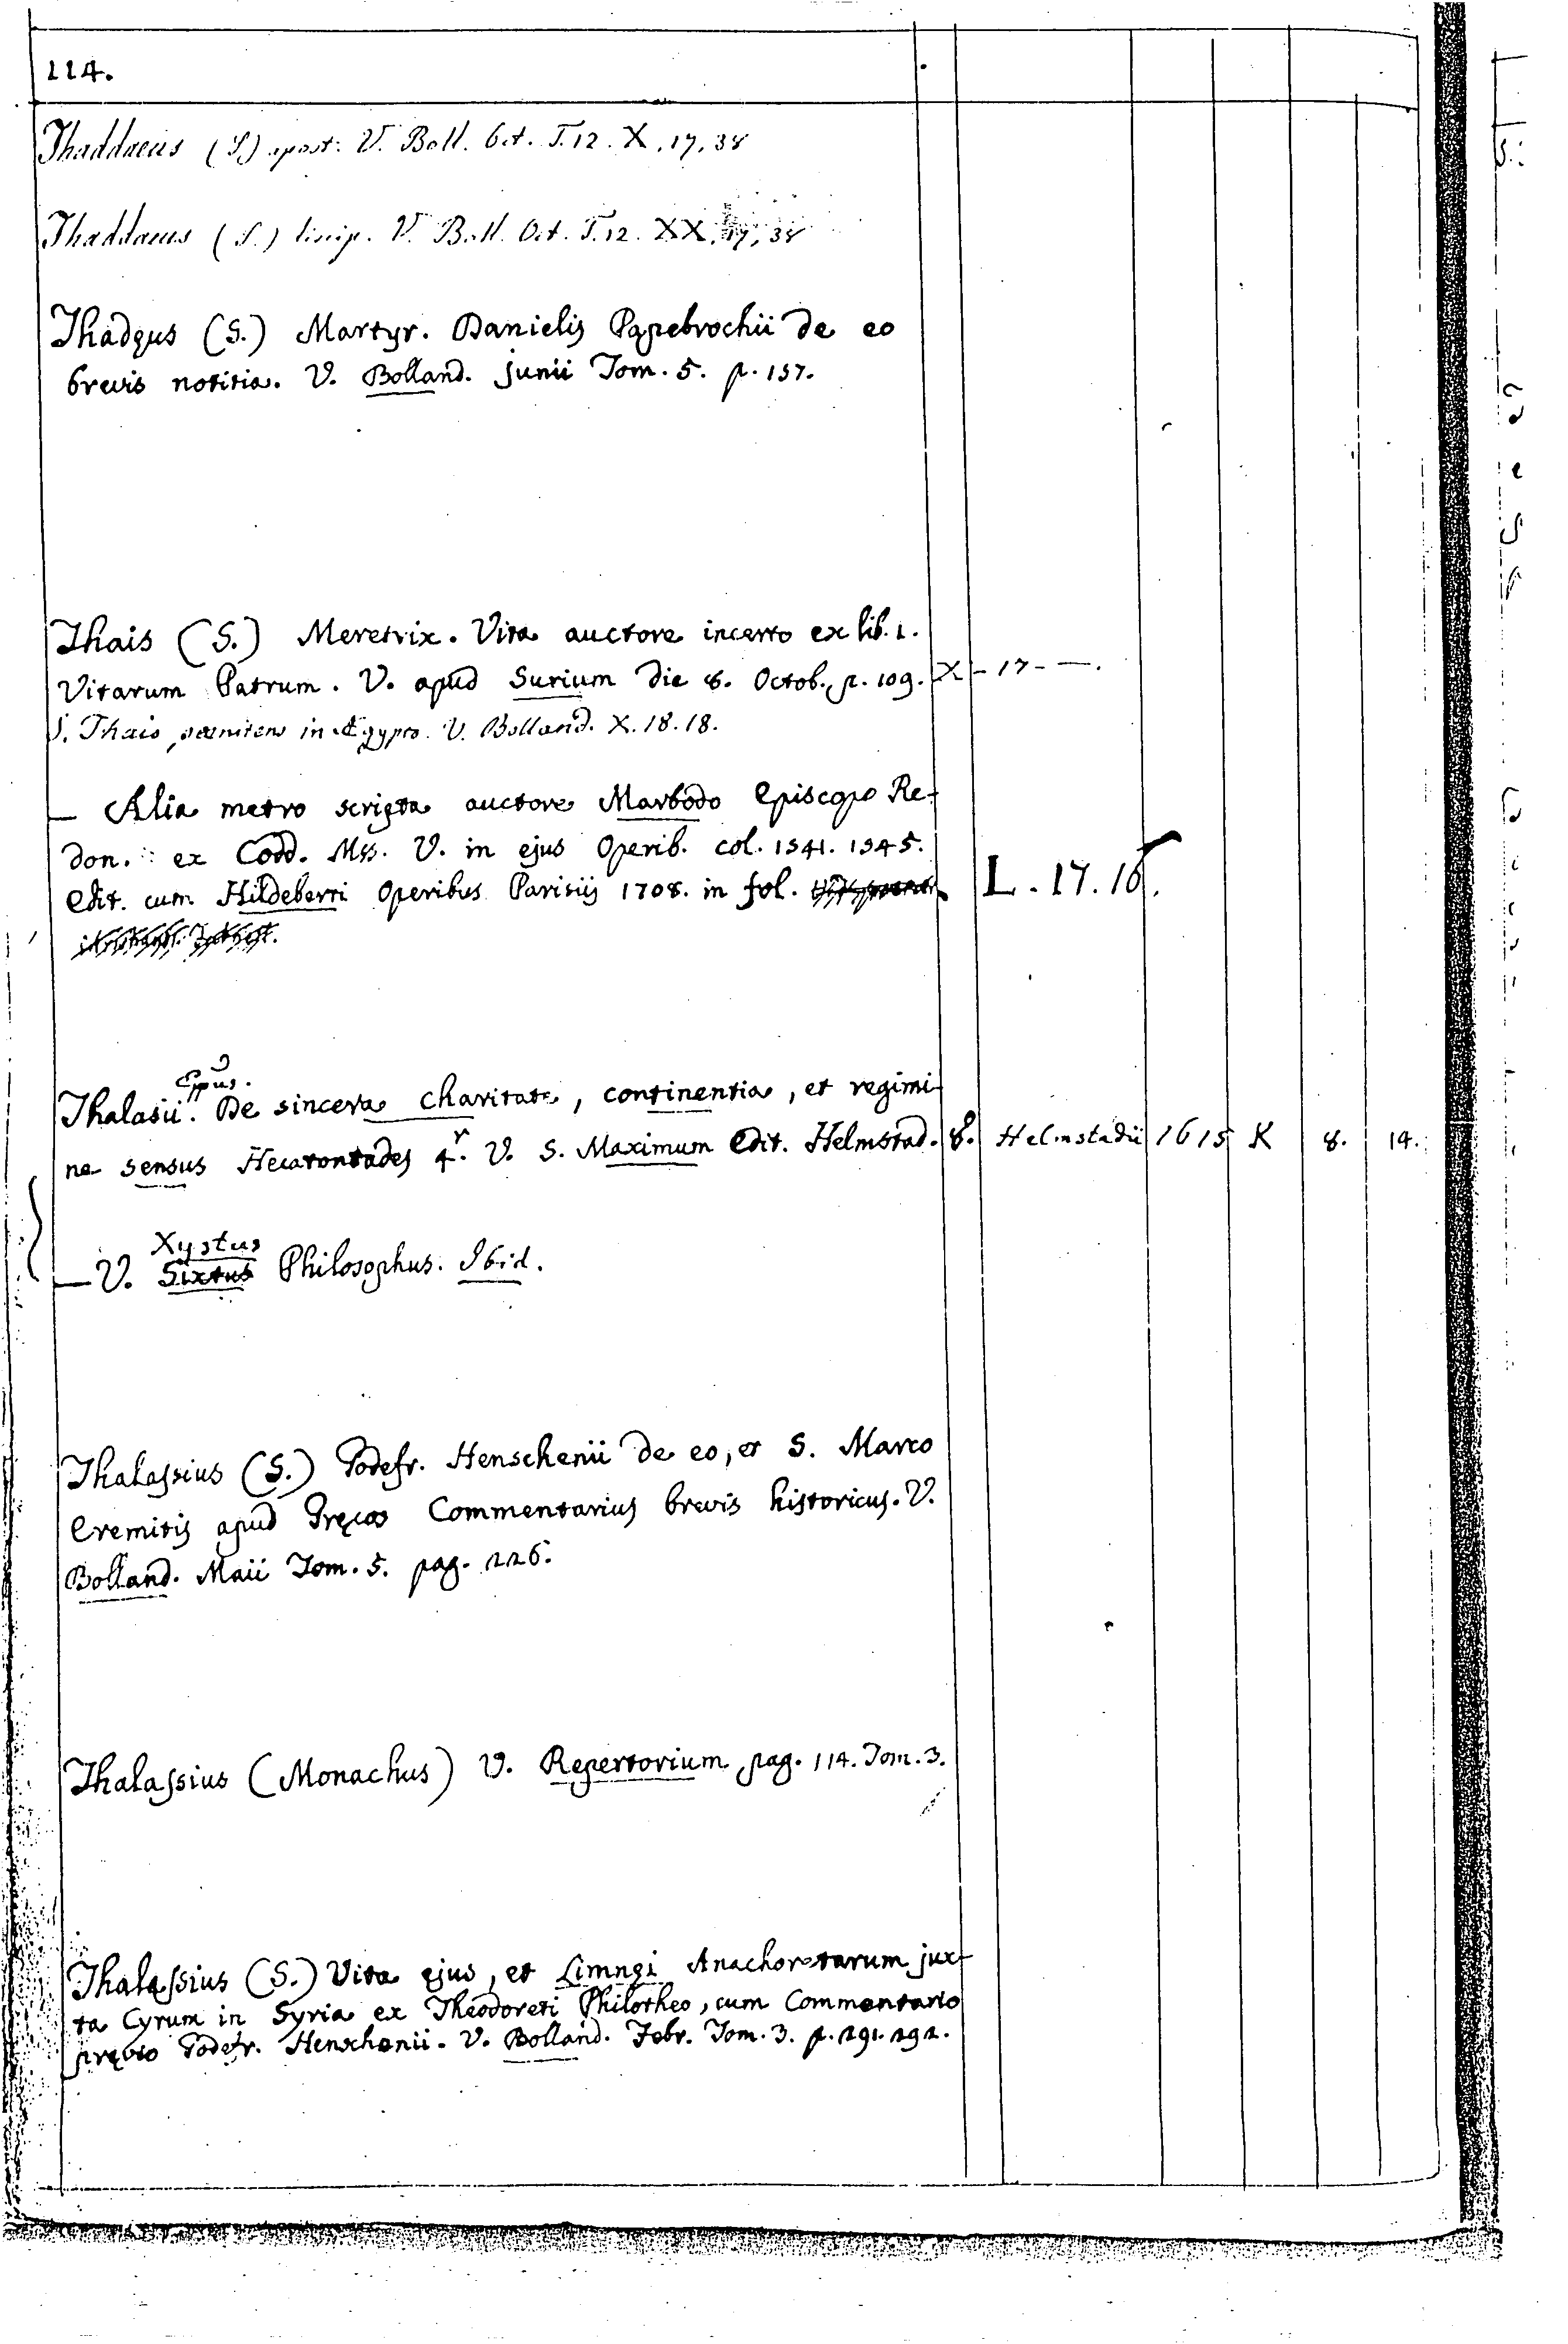 114.
Thaddaeus (S.) apost. V. Boll. Oct. T. 12. X. 17. 38
Thaddaeus (S.) discip. V. Boll. Oct. T. 12. XX. 17. 38
Thadęus (S.) Martyr. Danielis Papebrochii de eo
brevis notitia. V. Bolland. Junii Tom. 5. p. 137.
Thais (S.) Meretrix. Vita auctore incerto ex lib. 1.
Vitarum Patrum. V. apud Surium die 8. Octob. p. 109. X - 17 - —.
S. Thais, pœnitens in Ægypto. V. Bolland. X. 18. 18.
— Alia metro scripta auctore Marbodo Episcopo Re-
don. ex Codd. Mss. V. in ejus Operib. col. 1541. 1545.
edit. cum Hildeberti Operibus Parisiis 1708. in fol. L. 17. 16.
Epus.
Thalasii. De sincera charitate, continentia, et regimi-
ne sensus Hecatontades 4.r V. S. Maximum edit. Helmstad. 8. Helmstadii 1615 K 8. 14.
Xystus
— V. Sixtus Philosophus. Ibid.
Thalassius (S.) Godefr. Henschenii de eo, et S. Marco
Eremitis apud Gręcos Commentarius brevis historicus. V.
Bolland. Maii Tom. 5. pag. 226.
Thalassius (Monachus) V. Repertorium pag. 114. Tom. 3.
Thalassius (S.) Vita ejus, et Limnęi Anachoretarum jux-
ta Cyrum in Syria ex Theodoreti Philotheo, cum Commentario
pręvio Godefr. Henschenii. V. Bolland. Febr. Tom. 3. p. 291. 292.